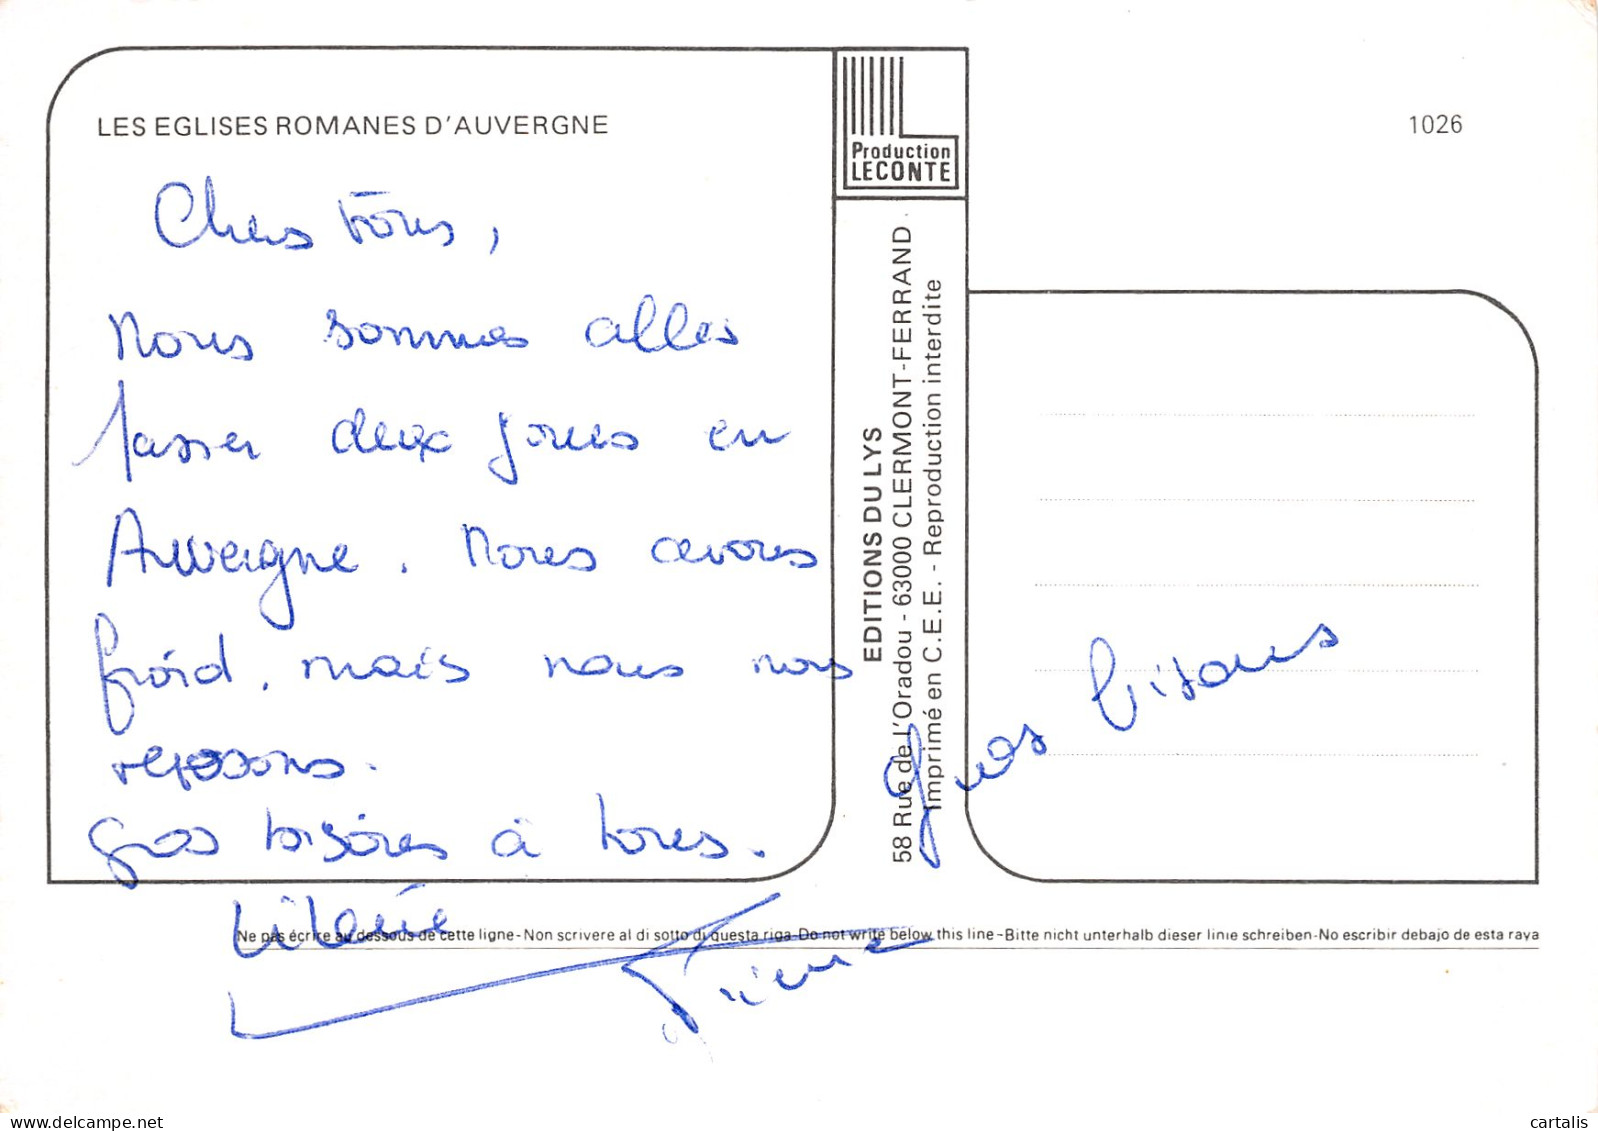 LES EGLISES ROMANES D'AUVERGNE
1026
Production
LECONTE
Chers tous,
Nous sommes allés
passer deux jours en
Auvergne. Nous avons
froid, mais nous nous
reposons.
Gros bisous à tous.
EDITIONS DU LYS
58 Rue de l'Oradou - 63000 CLERMONT-FERRAND
Imprimé en C.E.E. - Reproduction interdite
Gros bisous
Pierre
Ne pas écrire au dessous de cette ligne-Non scrivere al di sotto di questa riga-Do not write below this line-Bitte nicht unterhalb dieser linie schreiben-No escribir debajo de esta raya
cartalis